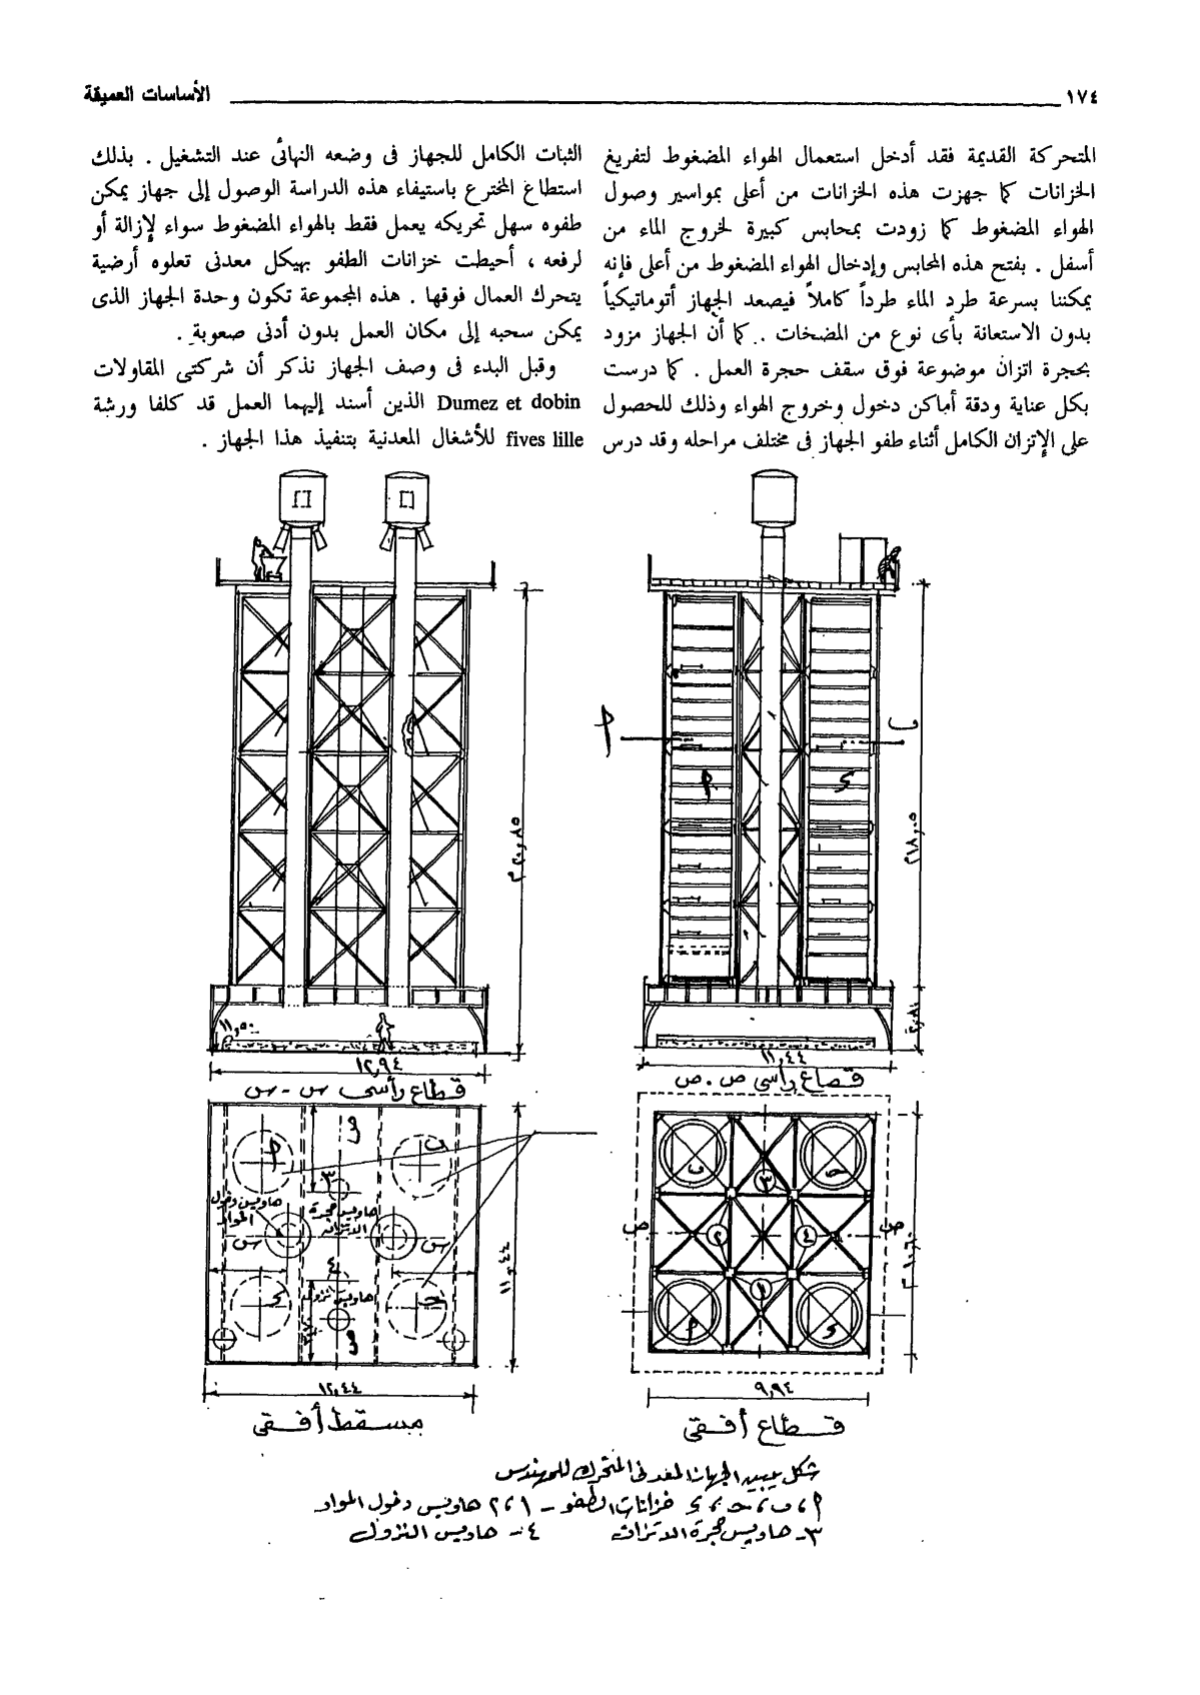 ١٧٤
الأساسات العميقة
المتحركة القديمة فقد أدخل استعمال الهواء المضغوط لتفريغ
الخزانات كما جهزت هذه الخزانات من أعلى بمواسير وصول
الهواء المضغوط كما زودت بمحابس كبيرة لخروج الماء من
أسفل . بفتح هذه المحابس وإدخال الهواء المضغوط من أعلى فإنه
يمكننا بسرعة طرد الماء طرداً كاملاً فيصعد الجهاز أتوماتيكياً
بدون الاستعانة بأى نوع من المضخات . كما أن الجهاز مزود
بحجرة اتزان موضوعة فوق سقف حجرة العمل . كما درست
بكل عناية ودقة أماكن دخول وخروج الهواء وذلك للحصول
على الإتزان الكامل أثناء طفو الجهاز فى مختلف مراحله وقد درس
الثبات الكامل للجهاز فى وضعه النهائى عند التشغيل . بذلك
استطاع المخترع باستيفاء هذه الدراسة الوصول إلى جهاز يمكن
طفوه سهل تحريكه يعمل فقط بالهواء المضغوط سواء لإزالة أو
لرفعه ، أحيطت خزانات الطفو بهيكل معدنى تعلوه أرضية
يتحرك العمال فوقها . هذه المجموعة تكون وحدة الجهاز الذى
يمكن سحبه إلى مكان العمل بدون أدنى صعوبة .
وقبل البدء فى وصف الجهاز نذكر أن شركتى المقاولات
Dumez et dobin الذين أسند إليهما العمل قد كلفا ورشة
fives lille للأشغال المعدنية بتنفيذ هذا الجهاز .
أ
ب
أ
ء
٢٠,٨٥ م
١٨,٠٥ م
١١,٥٠
١٢,٩٤
١١,٤٤
قطاع رأسى س - س
قطاع رأسى ص - ص
أ
ب
ص
٣
هاويس دخول
المواد
هاويس حجرة
الاتزان
س
س
٤
هاويس نزول
ء
حـ
ص
١١,٤٤
١٢,٤٤
ب
حـ
٣
ص
٢
٤
ص
١
أ
ء
٩,٩٤
مسقط أفقى
قطاع أفقى
شكل يبين الجهاز المعدنى المتحرك للمهندس
أ ، ب ، حـ ، ء خزانات الطفو - ١ ، ٢ هاويس دخول المواد
٣ - هاويس حجرة الاتزان ٤ - هاويس النزول